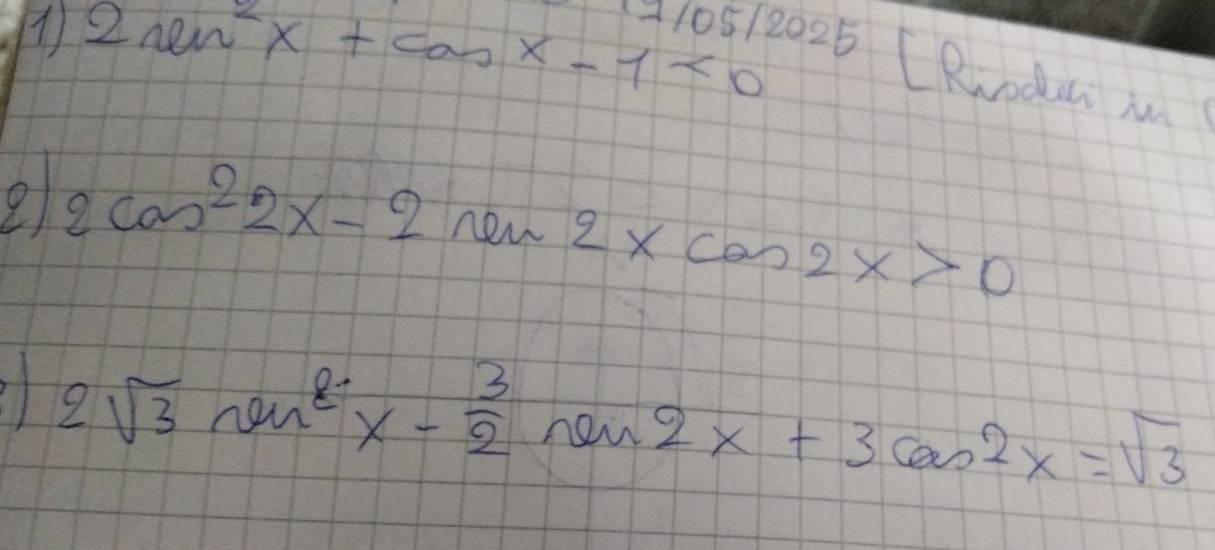 1) 2 sen² x + cos x - 1 < 0
/05/2025 [Riso
2) 2 cos² 2x - 2 sen 2x cos 2x > 0
) 2√3 sen² x - 3/2 sen 2x + 3 cos 2x = √3